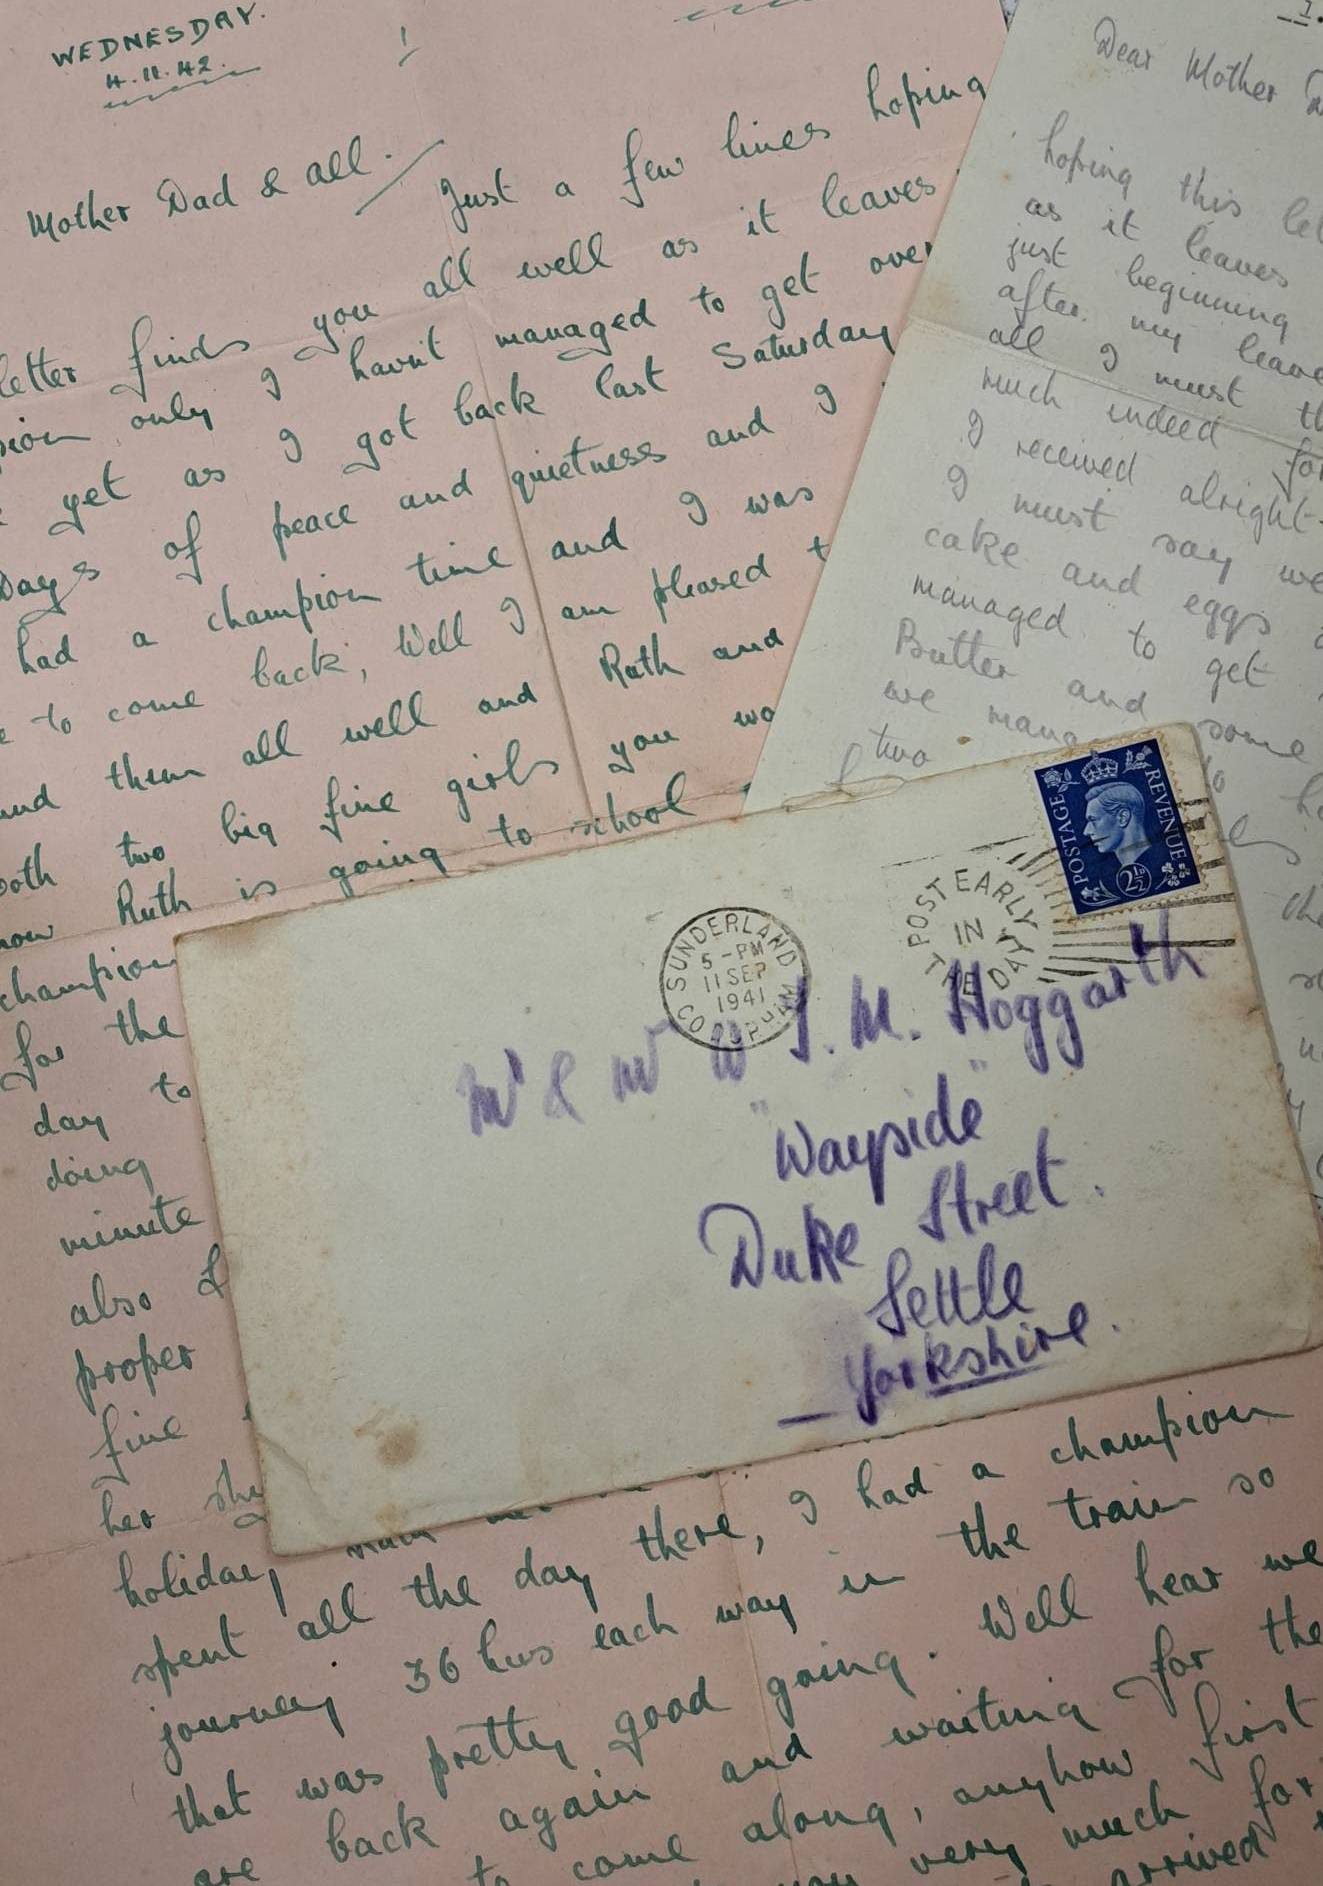 WEDNESDAY.
4.11.42.
Mother Dad & all.
Just a few lines hoping
letter finds you all well as it leaves
only I havn't managed to get over
yet as I got back last Saturday
Days of peace and quietness and I
had a champion time and I was
to come back, Well I am pleased
them all well and Ruth and
two big fine girls you
now Ruth is going to school
champion
for the
day to
doing
minute
also
proper
fine
her
holiday
spent all the day there, I had a champion
journey 36 hrs each way in the train so
that was pretty good going. Well hear we
are back again and waiting for the
to come along, anyhow first
you very much for
arrived
1.
Dear Mother
hoping this
as it leaves
just beginning
after my leave
all I must
much indeed for
I received alright
I must say we
cake and eggs
managed to get
Butter and some
we
two
POSTAGE REVENUE
2½D
POST EARLY
IN
THE DAY
SUNDERLAND
5-PM
11 SEP
1941
CO DURHAM
Mr & Mrs W J. M. Hoggarth
"Wayside"
Duke Street.
Settle
Yorkshire.